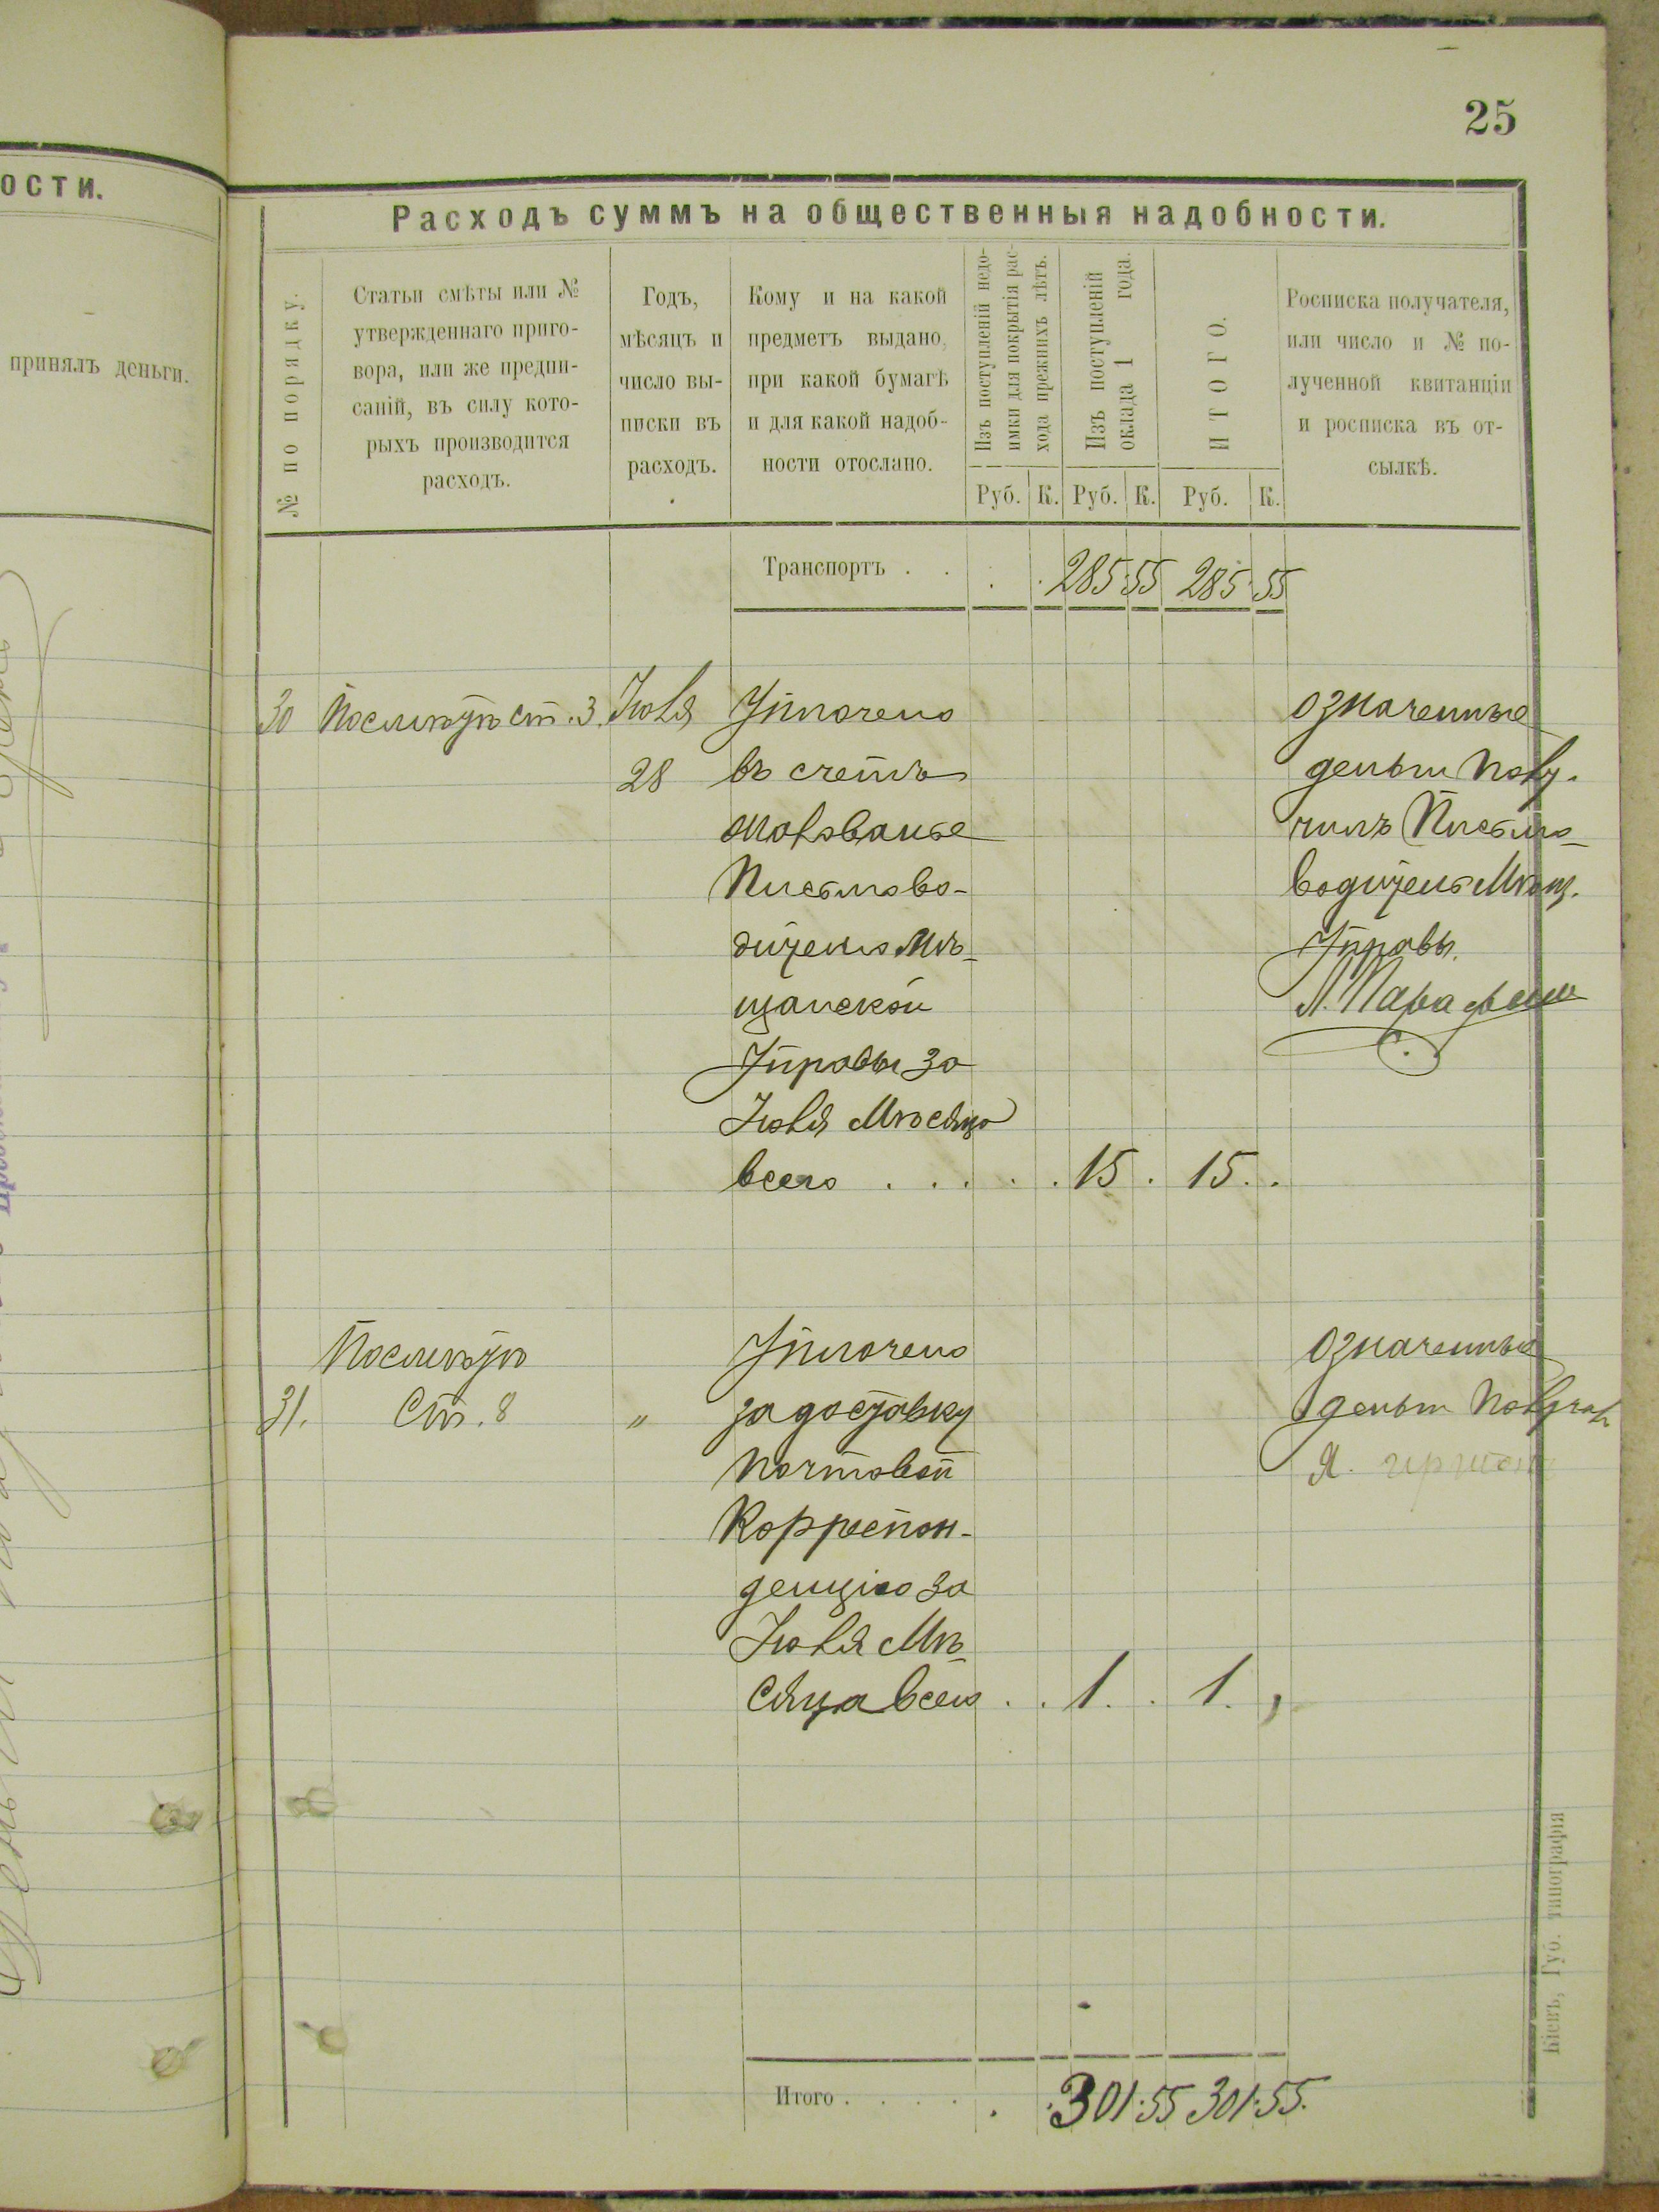 25
ости.
принялъ деньги.
Расходъ суммъ на общественныя надобности.
№ по порядку.
Статьи смѣты или №
утвержденнаго приго-
вора, или же предпи-
саній, въ силу кото-
рыхъ производится
расходъ.
Годъ,
мѣсяцъ и
число вы-
писки въ
расходъ.
Кому и на какой
предметъ выдано,
при какой бумагѣ
и для какой надоб-
ности отослано.
Изъ поступленій недо-
имки для покрытія рас-
хода прежнихъ лѣтъ.
Изъ поступленій
оклада 1 года.
ИТОГО.
Росписка получателя,
или число и № по-
лученной квитанціи
и росписка въ от-
сылкѣ.
Руб. К. Руб. К. Руб. К.
Транспортъ . . . . 285.55 285.55
30 По смѣтѣ ст. 3. Іюля Уплачено
28 въ счетъ
жалованье
Письмово-
дителю Мѣ-
щанской
Управы за
Іюля Мѣсяцъ
всего . . . . . 15 . 15 . .
означенные
деньги полу-
чилъ Письмо-
водитель Мѣщ.
Управы.
По смѣтѣ
31. Ст. 8 „
Уплачено
за доставку
почтовой
Корреспон-
денцію за
Іюля Мѣ-
сяца всего . . 1. . 1. ,
означенные
деньги получалъ
Я.
Итого . . . . . . 301.55 301.55.
Кіевъ, Губ. типографія